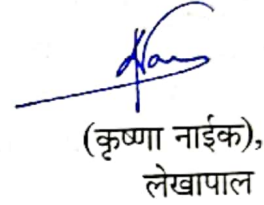 (कृष्णा नाईक),
लेखापाल